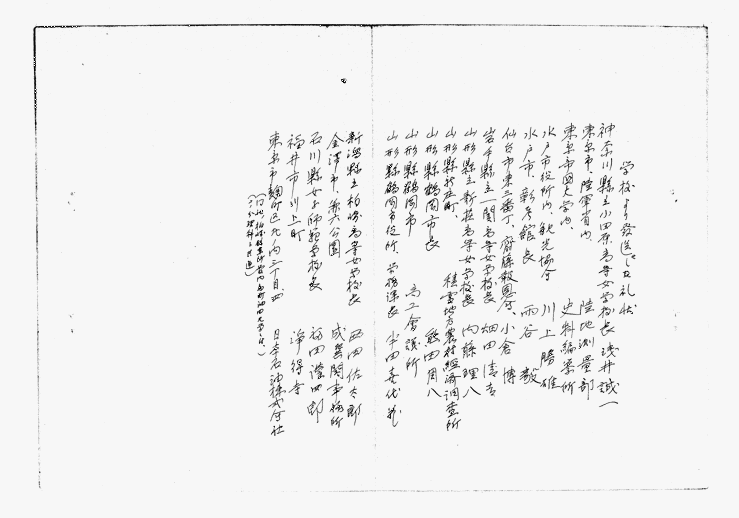 学校より発送した礼状
神奈川縣立小田原高等女学校長 浅井誠一
東京市、陸軍省内 陸地測量部
東京市帝國大学内、史料編纂所
水戸市役所内、観光協会 川上勝雄
水戸市、彰考館長 雨谷毅
仙台市東二番丁、齋藤報恩会、小倉博
岩手縣立一関高等女学校長 畑田清吉
山形縣立新荘高等女学校長 内藤理八
山形縣新庄町、積雪地方農村経済調査所
山形縣鶴岡市長 熊田周八
山形縣鶴岡市 商工會議所
山形縣鶴岡市役所、学務課長 半田喜代蔵
新潟縣立柏崎高等女学校長 西田佐太郎
金澤市、兼六公園 成巽閣事務所
石川縣女子師範学校長 福田濱四郎
福井市川上町 浄得寺
東京市麹町区丸ノ内三丁目、四 日本石油株式会社